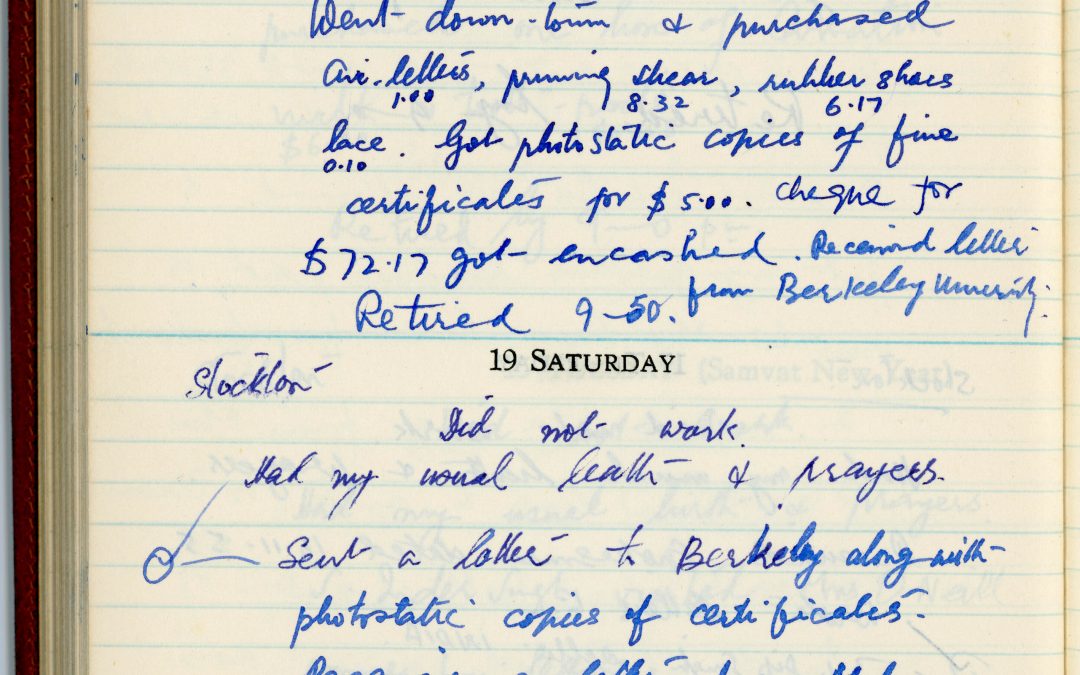 Went down-town & purchased
Air-letters, pruning shear, rubber shoes
1.00 8.32 6.17
lace. Got photostatic copies of fine
0.10
certificates for $5.00. Cheque for
$72.17 got encashed. Received letter
from Berkeley University.
Retired 9-50.
19 SATURDAY
Stockton
Did not work.
Had my usual bath & prayers.
Sent a letter to Berkeley along with
photostatic copies of certificates.